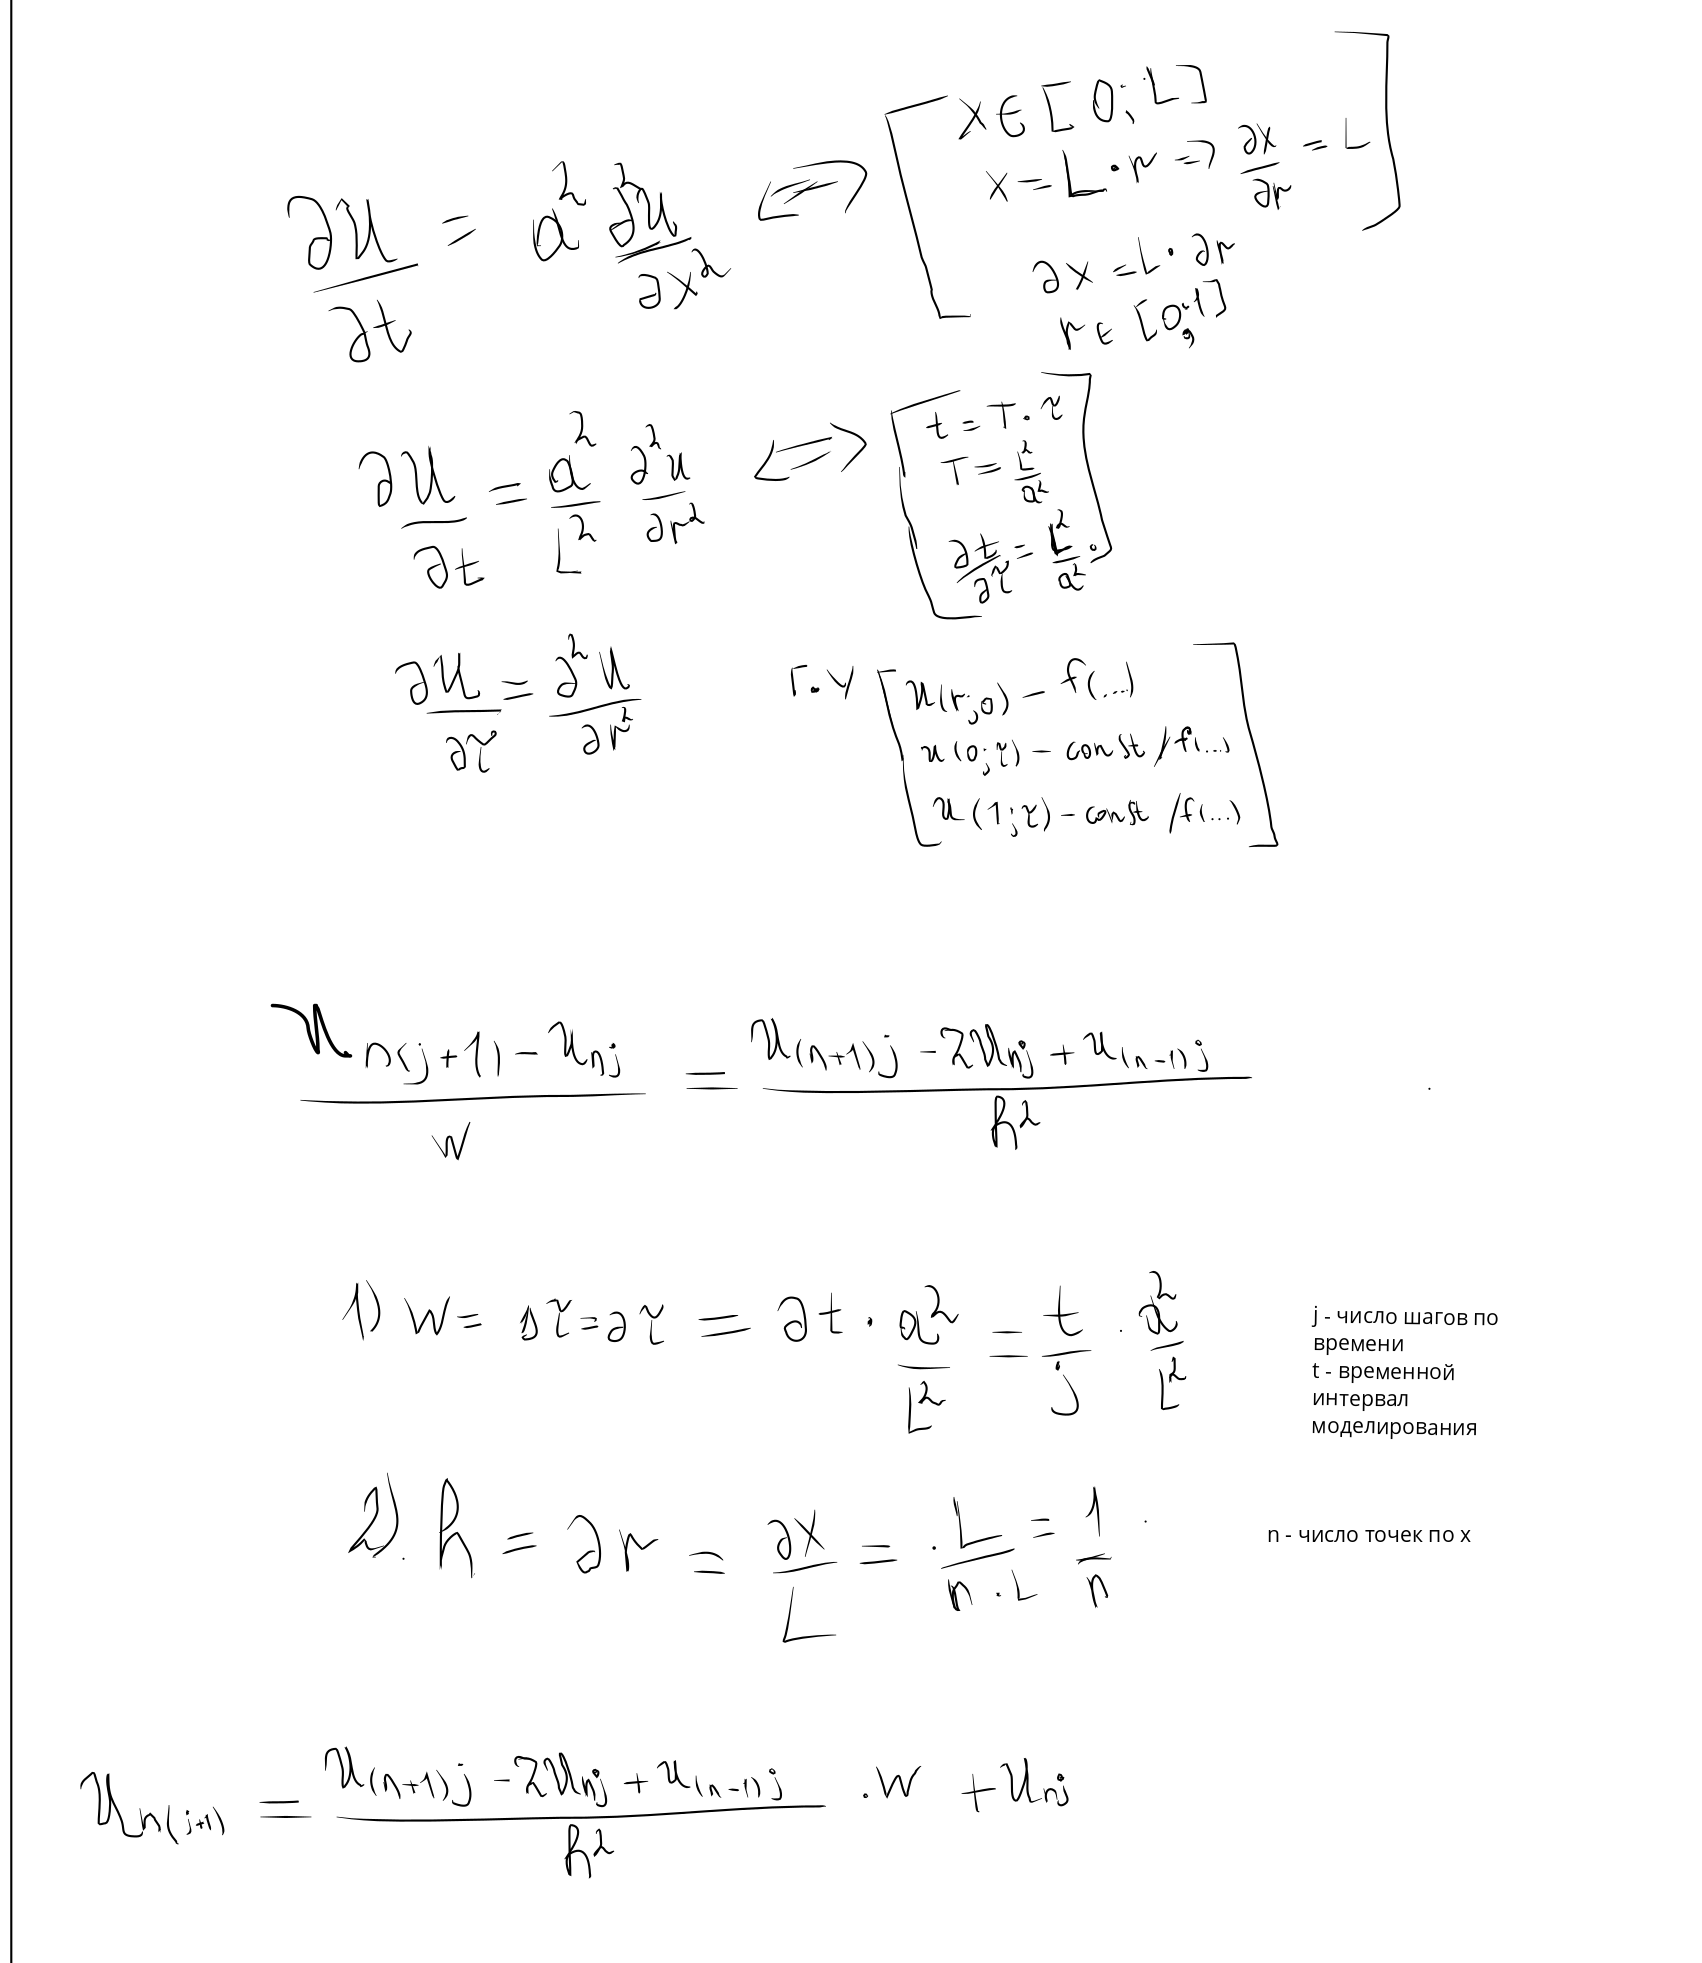 ∂u/∂t = a² ∂²u/∂x² ⟺ [ x ∈ [0; L]
x = L · r => ∂x/∂r = L ]
∂x = L · ∂r
r ∈ [0; 1]
∂u/∂t = a²/L² ∂²u/∂r² ⟺ [ t = T · τ
T = L²/a²
∂t/∂τ = L²/a² · ]
∂u/∂τ = ∂²u/∂r² Г.У [ u(r;0) – f(...)
u(0;τ) – const / f(...)
u(1;τ) – const / f(...) ]
(u n(j+1) – u nj)/w = (u (n+1)j – 2u nj + u (n-1)j)/h²
1) w = Δτ = ∂τ = ∂t · a²/L² = t/j · a²/L²
j - число шагов по
времени
t - временной
интервал
моделирования
2). h = ∂r = ∂x/L = L/(n · L) = 1/n
n - число точек по x
u n(j+1) = (u (n+1)j – 2u nj + u (n-1)j)/h² · w + u nj